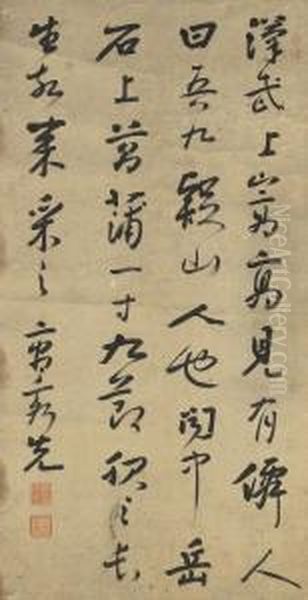 漢武上嵩高見有僊人
曰吾九疑山人也聞中岳
石上菖蒲一寸九節服之長
生故來采之 曹秀先